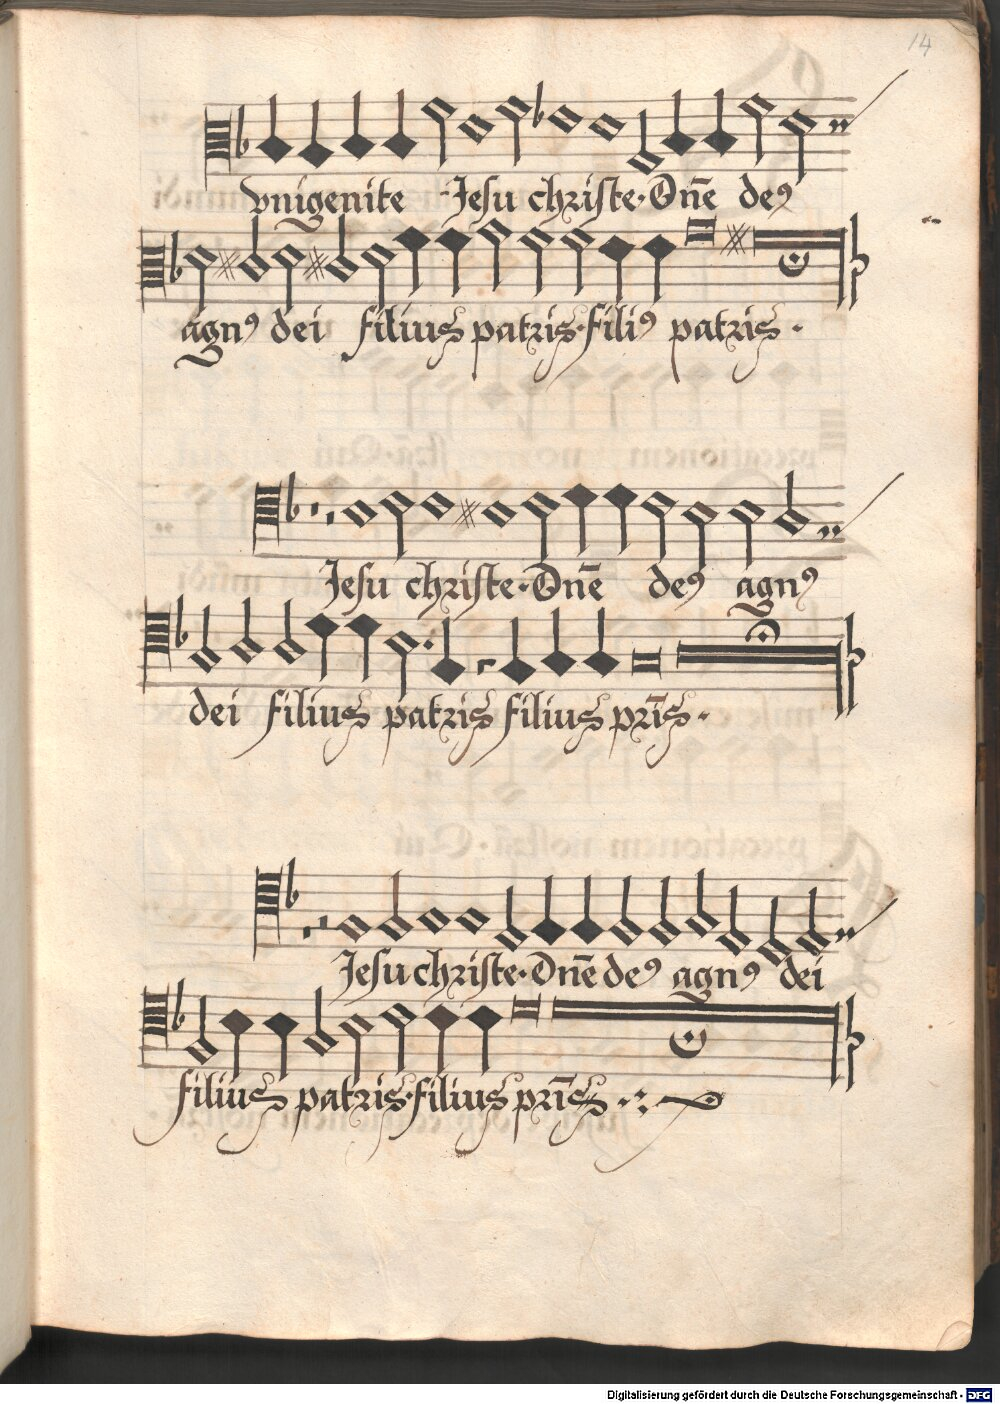 14
vnigenite Jesu christe · Dn̄e deꝰ
agnꝰ dei filius patris · filiꝰ patris ·
Jesu christe · Dn̄e deꝰ agnꝰ
dei filius patris filius pr̄is ·
Jesu christe · Dn̄e deꝰ agnꝰ dei
filius patris · filius pr̄is
Digitalisierung gefördert durch die Deutsche Forschungsgemeinschaft - DFG